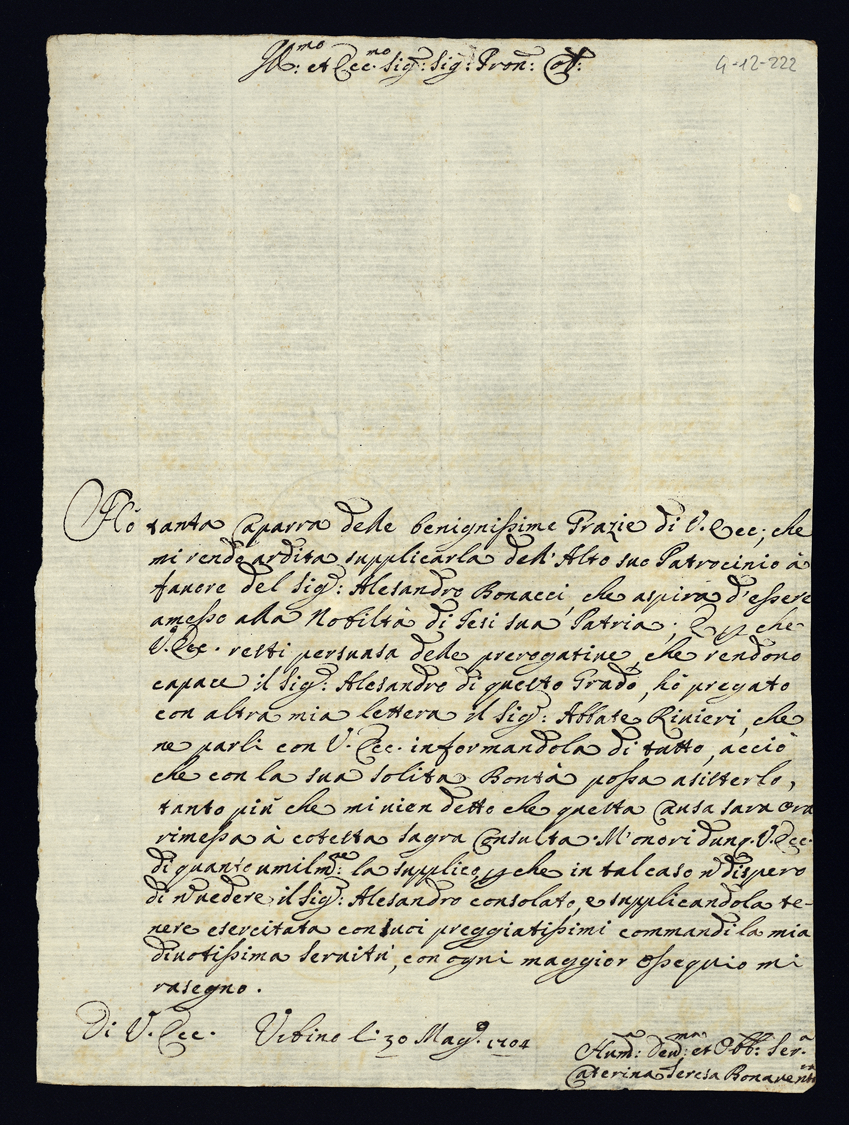 Ill.mo et Ecc.mo Sig.r Sig.r Pron: Col.
4-12-222
Hò tanta Caparra delle benignissime Grazie di V. Ecc:, che
mi rende ardita supplicarla dell' Alto suo Patrocinio à
fauore del Sig.r Alesandro Bonacci, che aspira d'essere
amesso alla Nobiltà di Iesi sua Patria. E p che
V. Ecc. resti persuasa delle prerogatiue, che rendono
capace il Sig.r Alesandro di questo Grado, hò pregato
con altra mia lettera il Sig.r Abbate Riuieri, che
ne parli con V. Ecc. informandola di tutto, acciò
che con la sua solita Bontà possa asisterlo,
tanto più che mi vien detto che questa Causa sarà ora
rimessa à cotesta Sagra Consulta. M'onori dunq. V. Ecc.
di quanto umilm.te la supplico, p che in tal caso n dispero
di n uedere il Sig.r Alesandro consolato, e supplicandola te-
nere esercitata con suoi preggiatissimi commandi la mia
diuotissima Seruitù, con ogni maggior Ossequio mi
rasegno.
Di V. Ecc. Vrbino li 30 Mag.o 1704
Hum.a Deu.ma et Obb. Ser.a
Caterina Teresa Bonauent